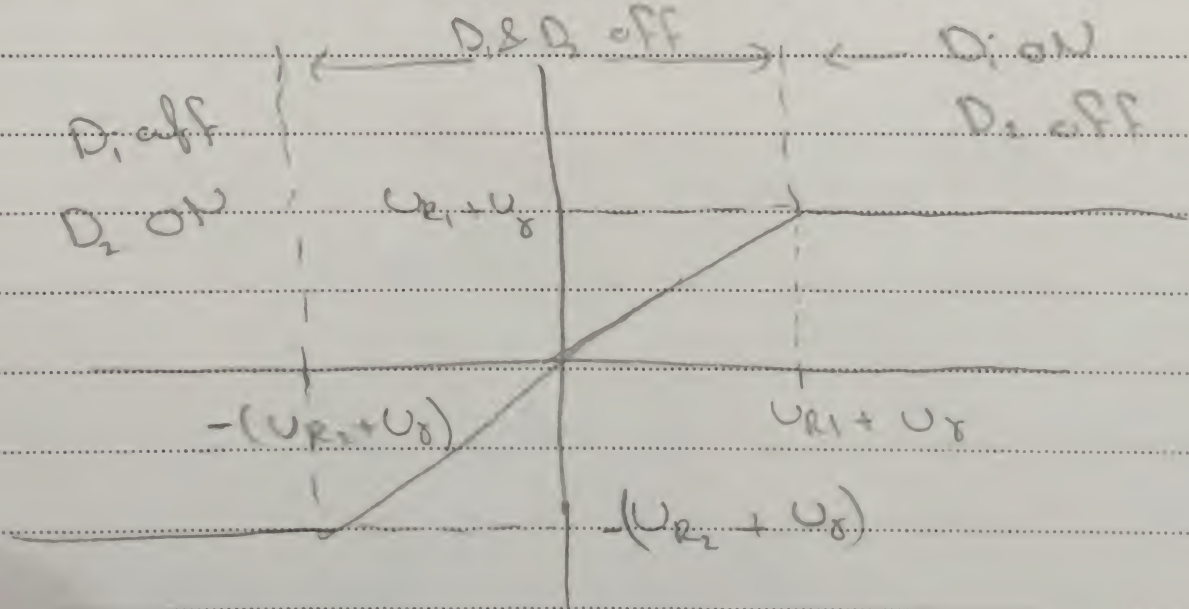 D₁ & D₂ off
D₁ ON
D₁ off
D₂ off
D₂ ON
U_R₁ + U_γ
-(U_R₂ + U_γ)
U_R1 + U_γ
-(U_R₂ + U_γ)